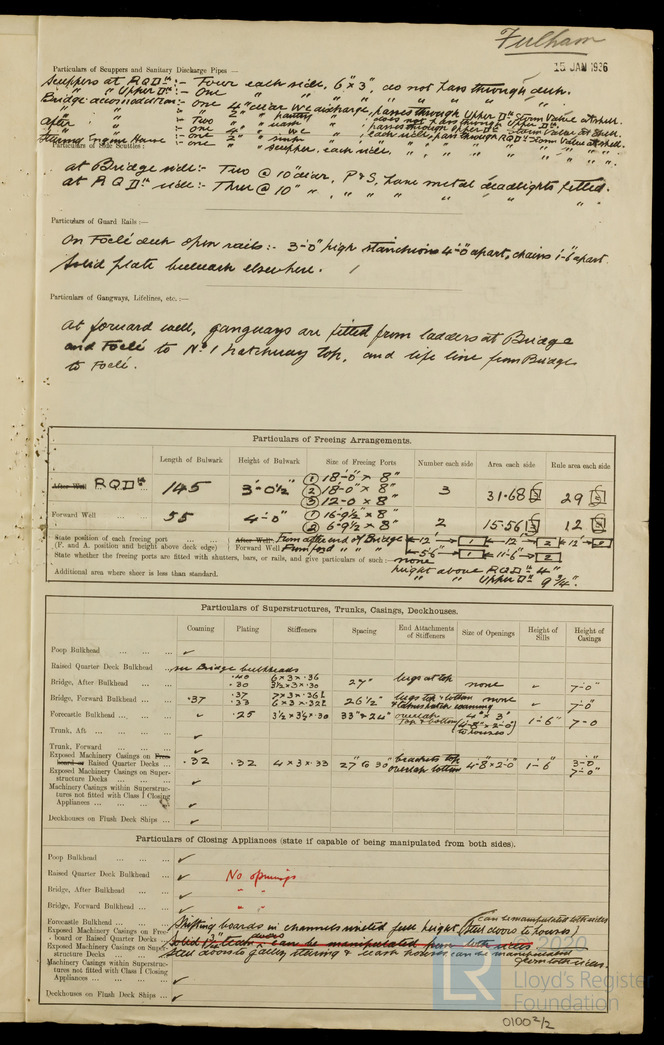 Fulham
15 JAN 1936
Particulars of Scuppers and Sanitary Discharge Pipes —
Scuppers at RQDk :- Four each side, 6" x 3", do not pass through deck.
" " Upper Dk :- One " " " " " " "
Bridge accommodation :- one 4" diar WC discharge, passes through Upper Dk Storm Valve at shell.
" " :- Two 2" pantry " , does not pass through Upper Dk.
After " :- one 4" WC " , passes through Upper Dk Storm Valve at Shell.
Steering Engine House :- one " scupper, each side, " " " "
Particulars of Side Scuttles :—
At Bridge side :- Two @ 10" diar, P & S, have metal deadlights fitted.
At RQDk side :- Three @ 10" " , " " " " "
Particulars of Guard Rails :—
On Focle deck open rails :- 3'-0" high stanchions 4'-0" apart, chains 1'-6" apart.
Solid plate bulwark elsewhere.
Particulars of Gangways, Lifelines, etc. :—
At forward well, gangways are fitted from ladders at Bridge
and Focle to No 1 hatchway top, and life line from Bridge
to Focle.
Particulars of Freeing Arrangements.
Length of Bulwark Height of Bulwark Size of Freeing Ports Number each side Area each side Rule area each side
After Well RQDk 145 3'-0½" ① 18'-0" x 8" ② 18'-0" x 8" ③ 12'-0 x 8" 3 31.68 29
Forward Well 55 4'-0" ① 16'-9½" x 8" ② 6'-9½" x 8" 2 15.56 12
State position of each freeing port (F. and A. position and height above deck edge) After Well From after end of Bridge 12' 1 12' 2 12' 3
Forward Well From ford " " " 5'-6" 1 11'-6" 2
State whether the freeing ports are fitted with shutters, bars, or rails, and give particulars of such :— none
Additional area where sheer is less than standard. height above RQDk 4"
" " Upper Dk 9¾".
Particulars of Superstructures, Trunks, Casings, Deckhouses.
Coaming Plating Stiffeners Spacing End Attachments of Stiffeners Size of Openings Height of Sills Height of Casings
Poop Bulkhead ✓
Raised Quarter Deck Bulkhead see Bridge bulkheads
Bridge, After Bulkhead .40 .30 6 x 3 x .36 3½ x 3 x .30 27" lugs at top none ✓ 7'-0"
Bridge, Forward Bulkhead .37 .37 .33 7 x 3 x .36 6 x 3 x .32 26½" lugs top & bottom none ✓ 7'-0"
Forecastle Bulkhead ✓ .25 3½ x 3½ x .30 33" & 24" overlap top & bottom 4' x 3' (4'-8" x 2'-0" to houses) 1'-6" 7'-0
Trunk, Aft ✓
Trunk, Forward ✓
Exposed Machinery Casings on Freeboard or Raised Quarter Decks .32 .32 4 x 3 x .32 27" to 30" brackets top overlap bottom 4'-8 x 2'-0" 1'-6" 3'-0" 7'-0"
Exposed Machinery Casings on Superstructure Decks ✓
Machinery Casings within Superstructures not fitted with Class I Closing Appliances ✓
Deckhouses on Flush Deck Ships ✓
Particulars of Closing Appliances (state if capable of being manipulated from both sides).
Poop Bulkhead ✓
Raised Quarter Deck Bulkhead ✓ No openings
Bridge, After Bulkhead ✓ " "
Bridge, Forward Bulkhead ✓ " "
Forecastle Bulkhead Shifting boards in channels riveted full height (steel doors to houses) can be manipulated both sides
Exposed Machinery Casings on Freeboard or Raised Quarter Decks Solid teak doors can be manipulated from both sides
Exposed Machinery Casings on Superstructure Decks Steel doors to galley, steering & wash houses can be manipulated from both sides.
Machinery Casings within Superstructures not fitted with Class I Closing Appliances ✓
Deckhouses on Flush Deck Ships ✓
2020
LR
Lloyd's Register
Foundation
0100 2/2